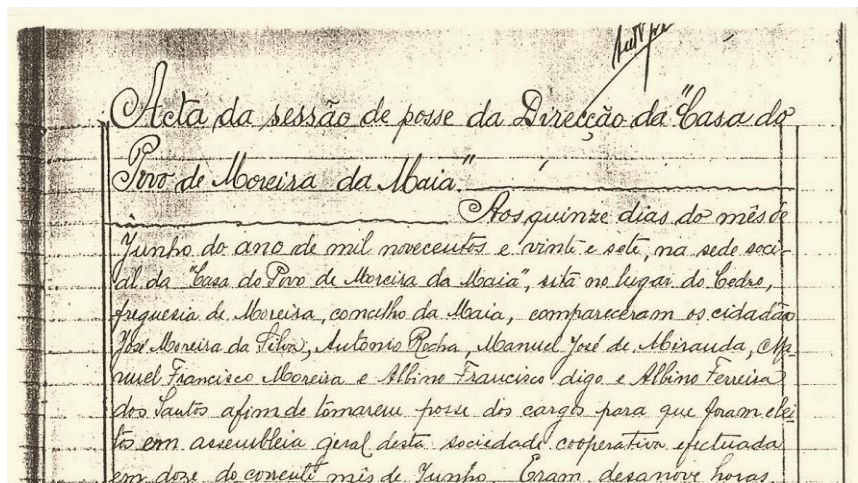 Acta da sessão de posse da Direcção da "Casa do
Povo de Moreira da Maia."
Aos quinze dias do mês de
Junho do ano de mil novecentos e vinte e sete, na sede soci-
al da "Casa do Povo de Moreira da Maia", sita no lugar do Cedro,
freguesia de Moreira, concelho da Maia, compareceram os cidadão
José Moreira da Silva, Antonio Rocha, Manuel José de Miranda, Ma
nuel Francisco Moreira e Albino Francisco digo e Albino Ferreira
dos Santos afim de tomarem posse dos cargos para que foram elei
tos em assembleia geral desta sociedade cooperativa efectuada
em doze do corrente mês de Junho. Eram desanove horas